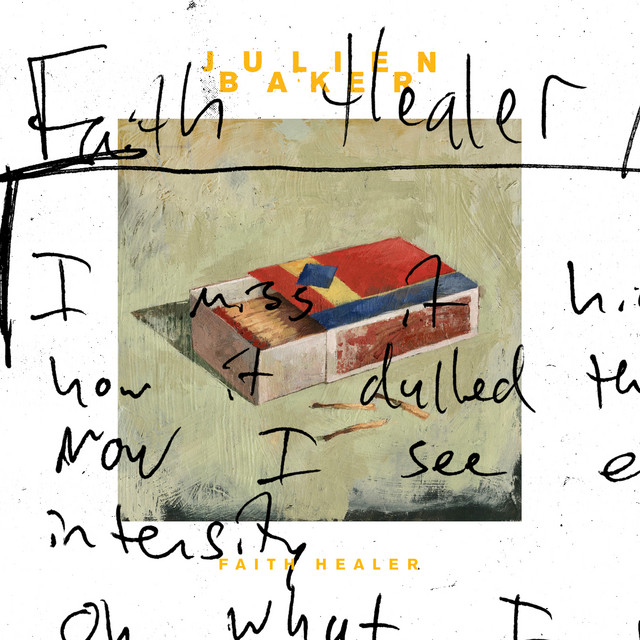 JULIEN
BAKER
Faith Healer
I miss it hi
how it dulled th
Now I see e
intensity
FAITH HEALER
Oh what I